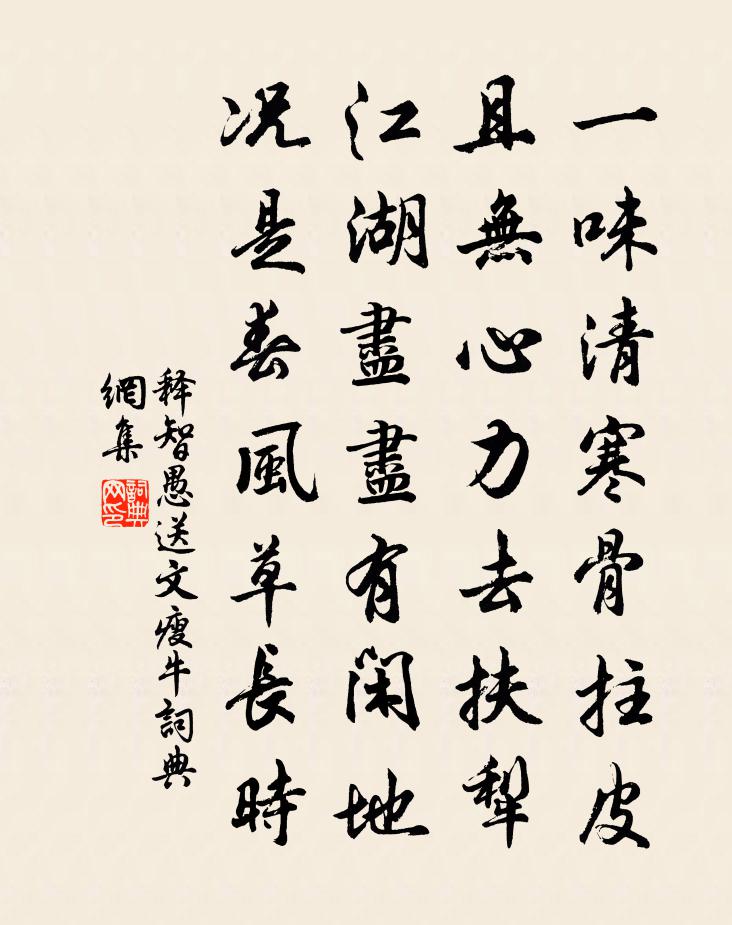 一味清寒骨拄皮
且無心力去扶犂
江湖盡盡有閑地
况是春風草長時
释智愚送文瘦牛詞典
網集
詞典
网印